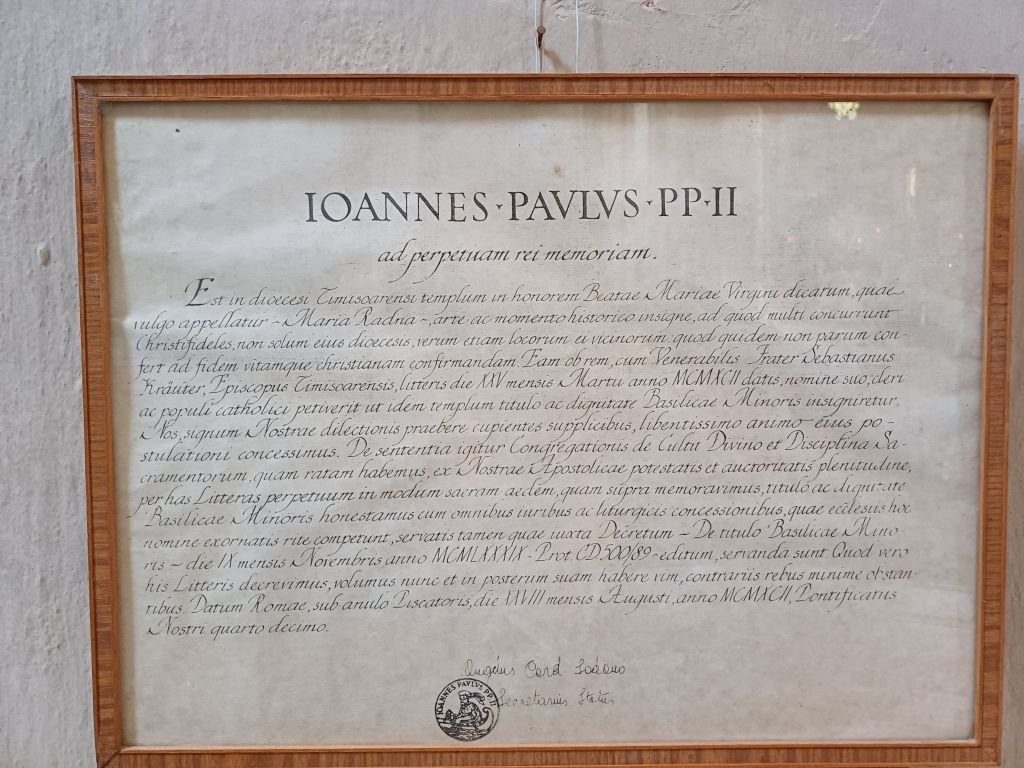 IOANNES · PAVLVS · PP · II
ad perpetuam rei memoriam.
Est in dioecesi Timisoarensi templum in honorem Beatae Mariae Virgini dicatum, quae
vulgo appellatur - Maria Radna -, arte ac momento historico insigne, ad quod multi concurrunt
Christifideles, non solum eius dioecesis, verum etiam locorum ei vicinorum, quod quidem non parum con-
fert ad fidem vitamque christianam confirmandam. Eam ob rem, cum Venerabilis Frater Sebastianus
Kräuter, Episcopus Timisoarensis, litteris die XXV mensis Martii anno MCMXCII datis, nomine suo, cleri
ac populi catholici petiverit ut idem templum titulo ac dignitate Basilicae Minoris insigniretur,
Nos, signum Nostrae dilectionis praebere cupientes supplicibus, libentissimo animo eius po-
stulationi concessimus. De sententia igitur Congregationis de Cultu Divino et Disciplina Sa-
cramentorum, quam ratam habemus, ex Nostrae Apostolicae potestatis et auctoritatis plenitudine,
per has Litteras perpetuum in modum sacram aedem, quam supra memoravimus, titulo ac dignitate
Basilicae Minoris honestamus cum omnibus iuribus ac liturgicis concessionibus, quae ecclesiis hoc
nomine exornatis rite competunt, servatis tamen quae iuxta Decretum - De titulo Basilicae Mino
ris - die IX mensis Novembris anno MCMLXXXIX - Prot. CD. 500/89 - editum, servanda sunt. Quod vero
his Litteris decrevimus, volumus nunc et in posterum suam habere vim, contrariis rebus minime obstan-
tibus. Datum Romae, sub anulo Piscatoris, die XXVIII mensis Augusti, anno MCMXCII, Pontificatus
Nostri quarto decimo.
Angelus Card Sodano
Secretarius Status
IOANNES PAVLVS PP · II